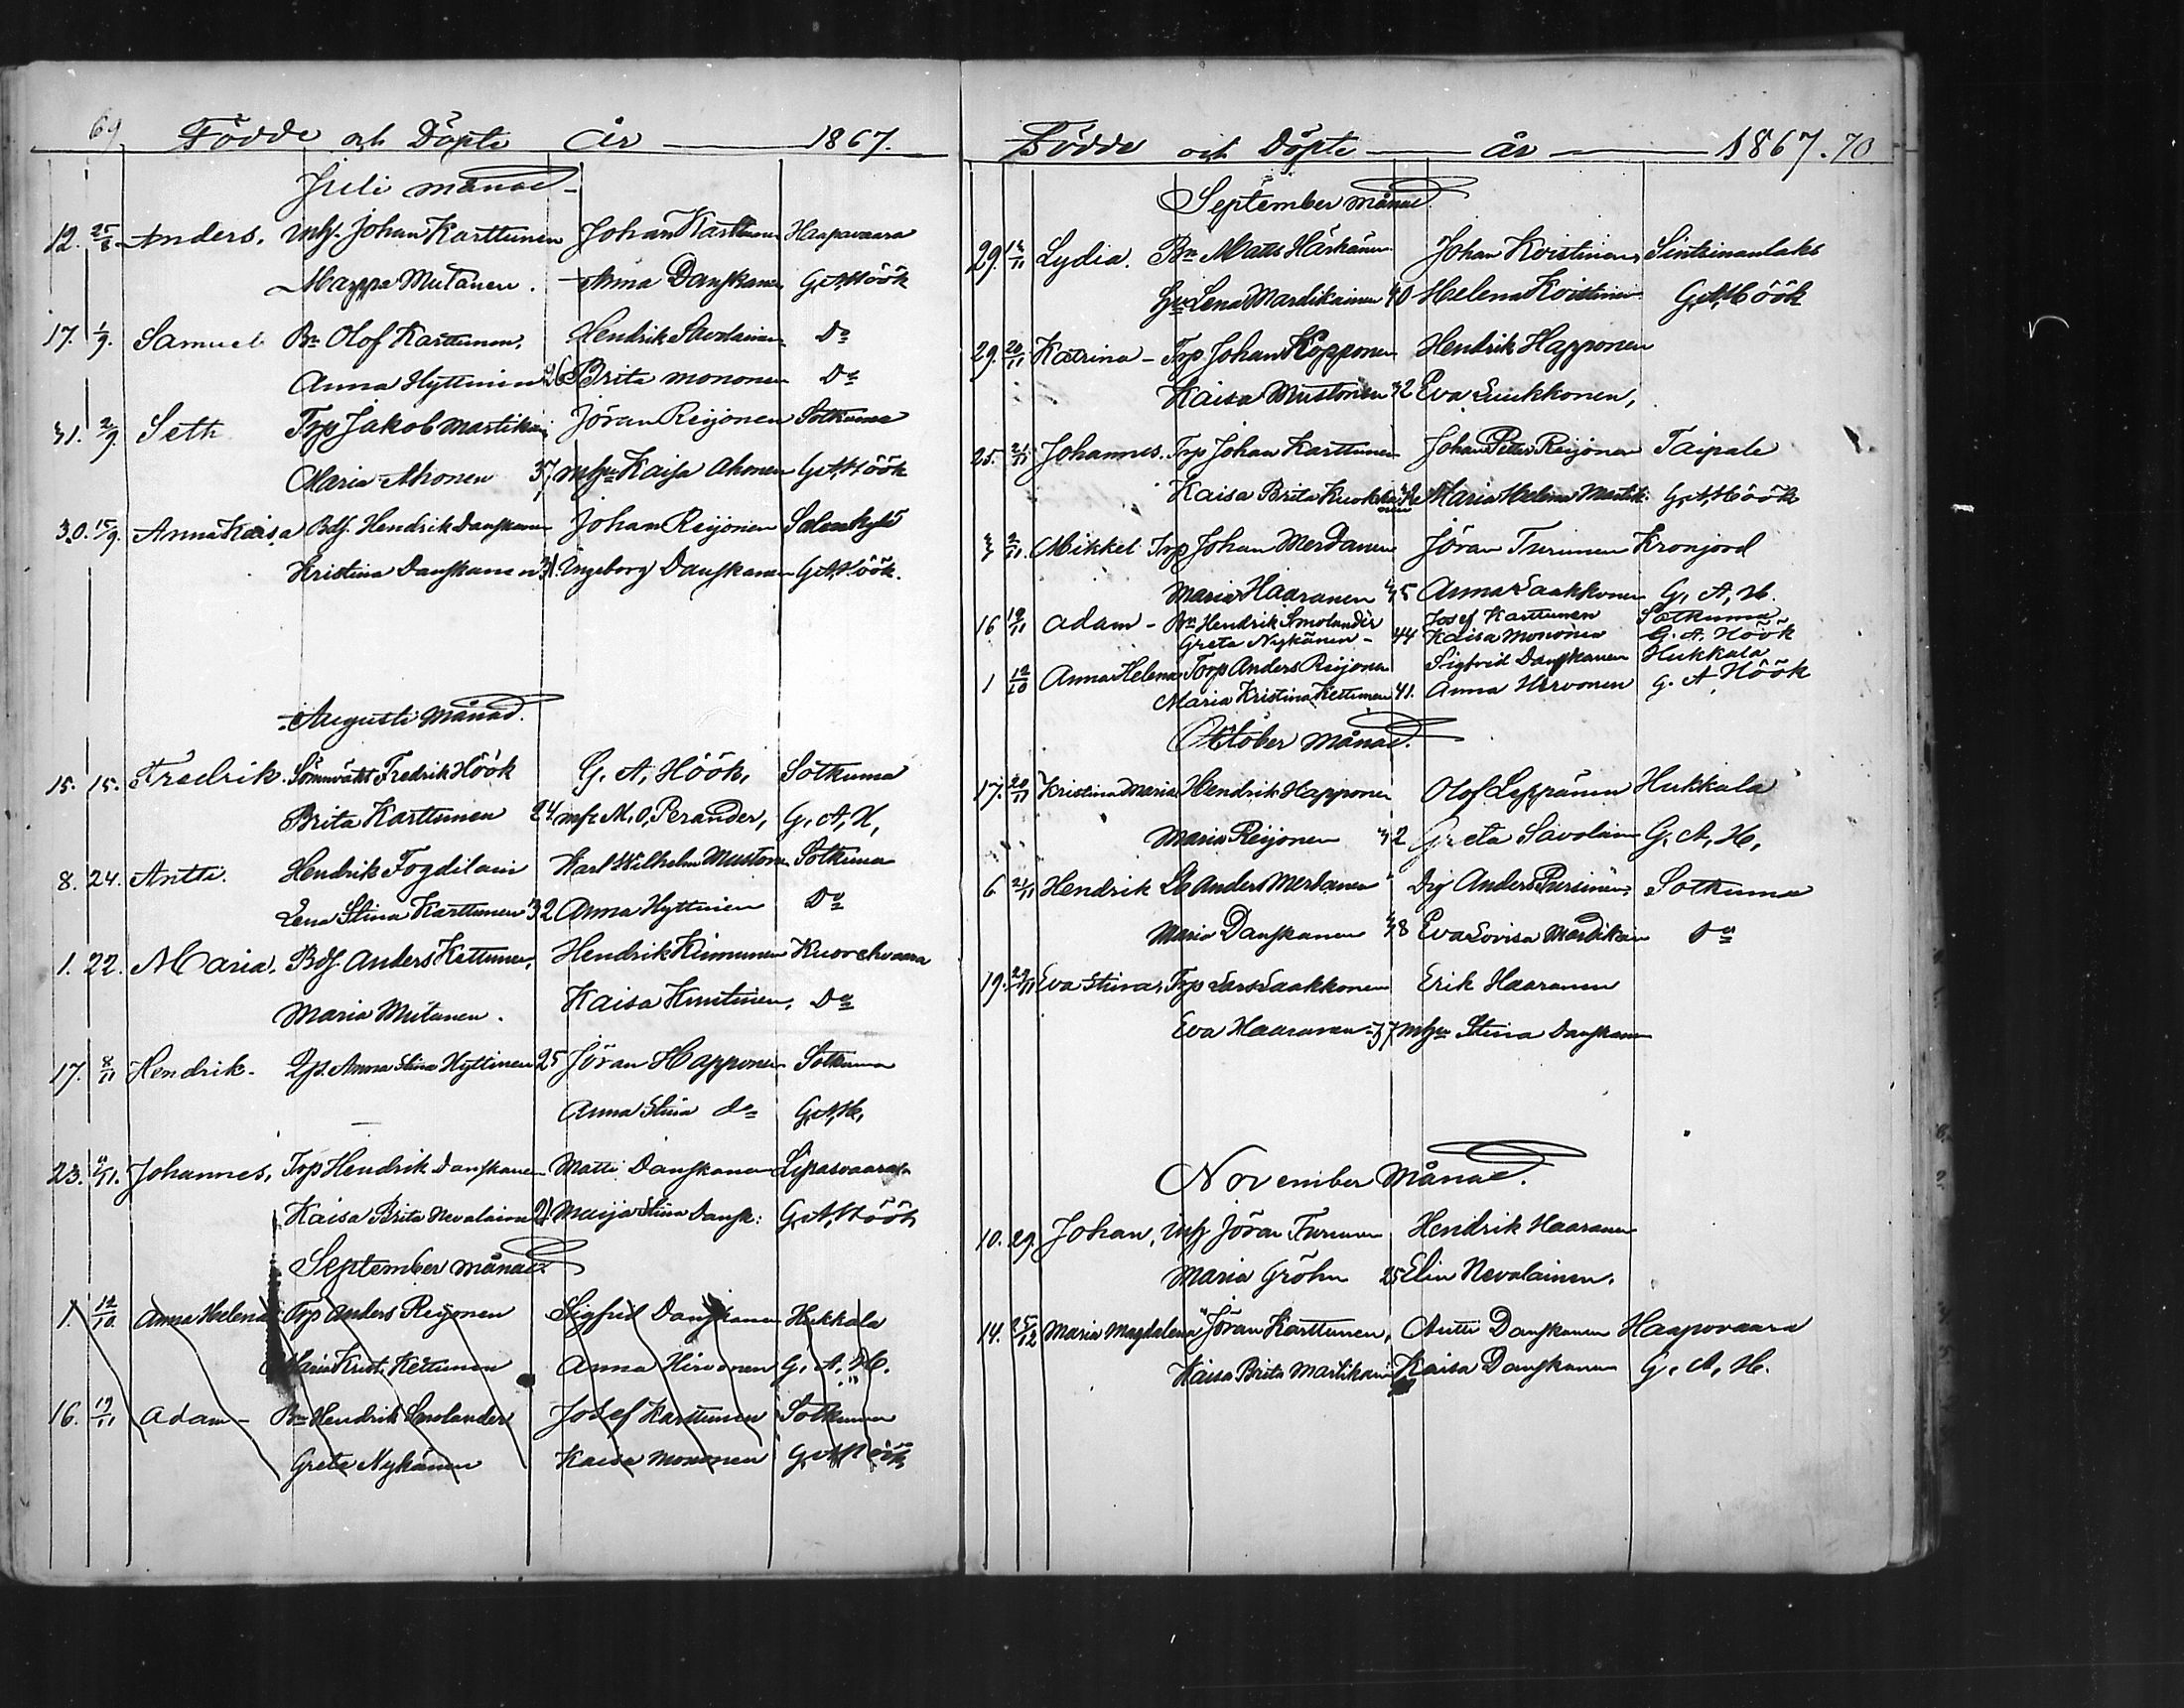 69 Födde och Döpte År 1867.
Juli månad
12. 25/8 Anders. Inhy. Johan Karttunen Johan Karttunen Haapavaara
Mappe Mutanen. Anna Danskanen G. A. Höök
17. 1/9. Samuel Bn Olof Karttunen, Hendrik Savolainen Do
Anna Hyttinen 26 Brita Mononen Do
31. 2/9. Seth Trp Jakob Martikain Jöran Reijonen Sotkuma
Maria Ahonen 37 Kaisa Ahonen G. A. Höök
30. 15/9. Anna Kaisa Hendrik Danskanen Johan Reijonen
Kristina Danskanen 31. Ingeborg Danskanen G. A. Höök.
Augusti Månad.
15. 15. Fredrik. Fredrik Höök G. A, Höök, Sotkuma
Brita Karttunen 24 M. O, Perander, G, A, H,
8. 24. Antti. Hendrik Karl Wilhelm Mustonen Sotkuma
Lena Stina Karttunen 32 Anna Hyttinen Do
1. 22. Maria. Anders Kettunen, Hendrik Kinnunen
Maria Mutanen. Kaisa Do
17. 8/11 Hendrik. Anna Stina Hyttinen 25 Jöran Happonen Sotkuma
Anna Stina do G, A, H,
23. Johannes, Trp Hendrik Danskanen Matti Danskanen
Kaisa Brita Nevalainen 21 Maija Stina Dansk: G, A, Höök
September månad
1. 12/10 Anna Helena Trp Anders Reijonen Sigfrid Danskanen Hukkala
Maria Krist. Kettunen Anna Hirvonen G, A, H.
16. 19/11 Adam - Bn Hendrik Smolander Josef Karttunen Sotkuma
Greta Nykänen Kaisa Mononen G. A. Höök
Födde och Döpte år 1867. 70
September månad
29. Lydia. Bn Matts Härkönen Johan Koistinen
Lena Mardikainen 40 Helena Koistinen G. A. Höök
29. 20/11 Katrina - Trp Johan Kopponen Hendrik Happonen
Kaisa Mustonen 32 Eva Luukkonen,
25. 21/11 Johannes. Trp Johan Karttunen Johan Petter Reijonen Taipale
Kaisa Brita Maria Helena Martik: G, A, Höök
3 Mikkel Trp Johan Merdanen Jöran Turunen Kronjord
Maria Haaranen 35 Anna Laakkonen G, A, H.
16 19/11 Adam - Bn Hendrik Smolander Josef Karttunen Sotkuma
Greta Nykänen - 44 Kaisa Mononen G. A. Höök
1 12/10 Anna Helena Torp Anders Reijonen Sigfrid Danskanen Hukkala
Maria Kristina Kettunen 41. Anna Hirvonen G. A. Höök
Oktober månad.
17. Kristina Maria Hendrik Happonen Olof Leppänen Hukkala
Maria Reijonen 32 Greta Savolain G, A, H,
6 21/11 Hendrik Anders Merdanen Anders Sotkuma
Maria Danskanen 38 Eva Lovisa Mardikain Do
19. 29/11 Eva Stina, Trp Lars Laakkonen Erik Haaranen
Eva Haaranen 37 Stina Danskanen
November Månad.
10. 29. Johan, Inh Jöran Turunen Hendrik Haaranen
Maria Gröhn 25 Elin Nevalainen.
14. 25/12 Maria Magdalena Jöran Karttunen, Antti Danskanen Haapovaara
Kaisa Brita Martikain Kaisa Danskanen G, A, H.